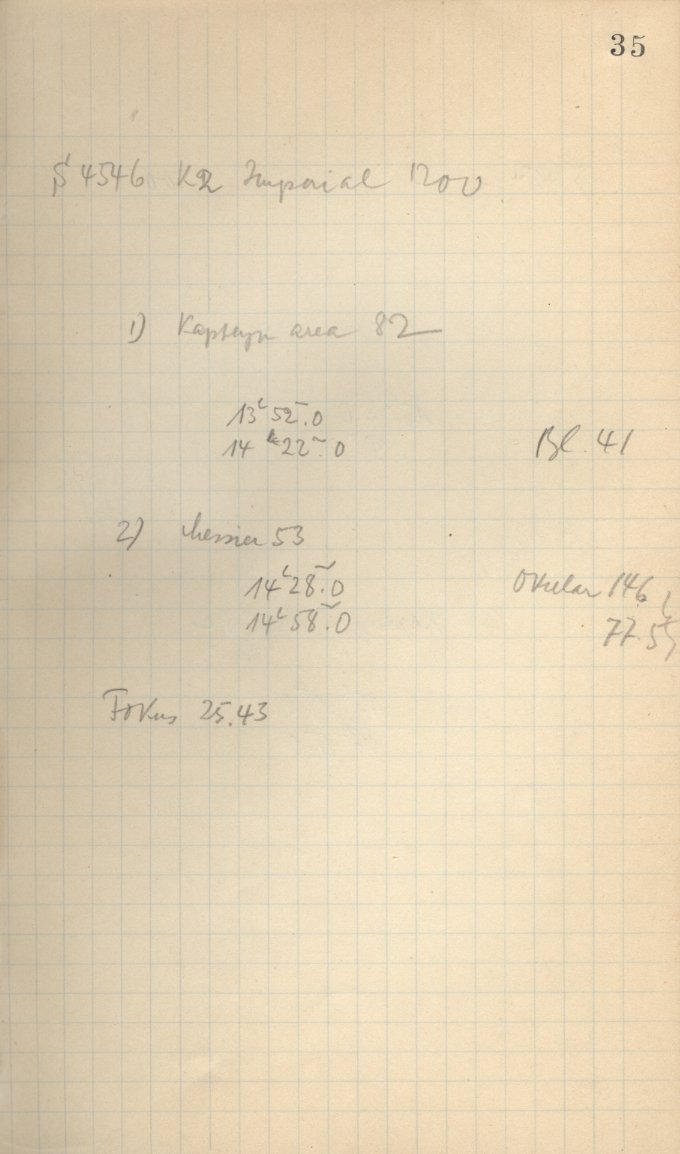 35
S 4546 K2 Imperial 1200
1) Kapteyn area 82
13h 52m.0
14h 22m.0 Bl. 41
2) Messier 53
14h 28m.0 Okular 146
14h 58m.0 77.5
Fokus 25.43